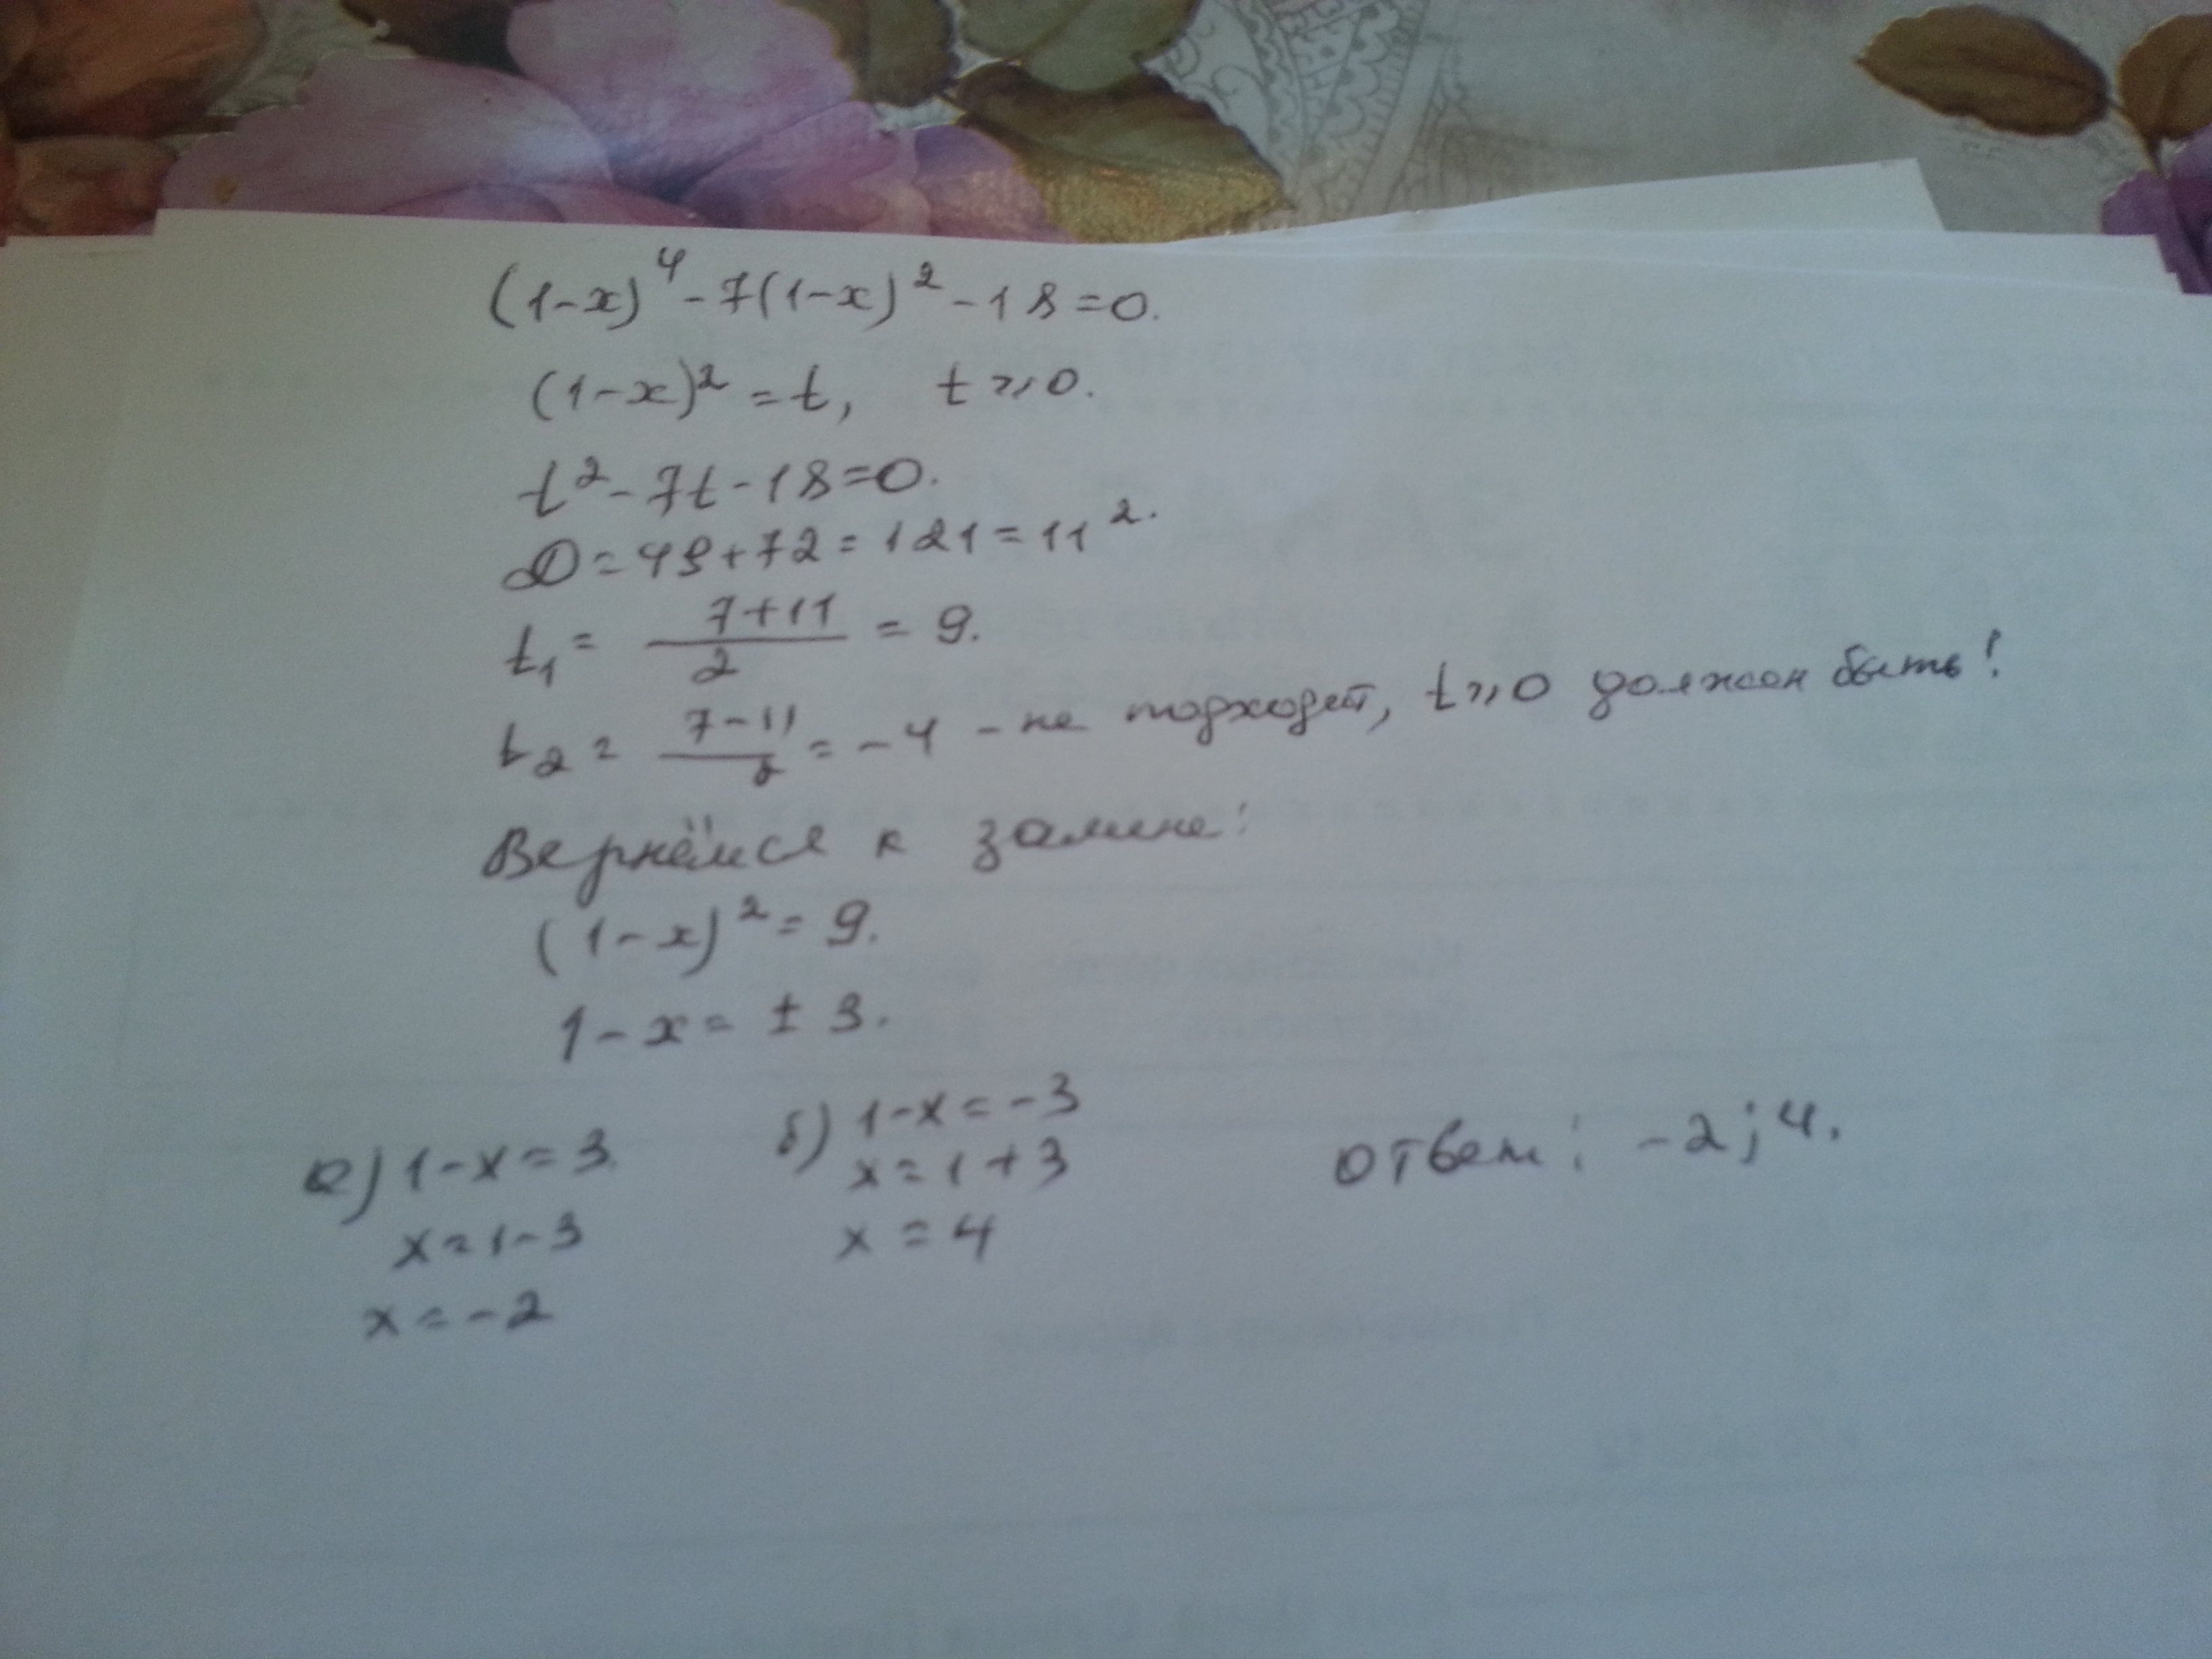 (1-x)⁴-7(1-x)²-18=0.
(1-x)²=t, t⩾0.
t²-7t-18=0.
D=49+72=121=11².
t₁=(7+11)/2=9.
t₂=(7-11)/2=-4 - не подходит, t⩾0 должен быть!
Вернёмся к замене:
(1-x)²=9.
1-x=±3.
а) 1-x=3
x=1-3
x=-2
б) 1-x=-3
x=1+3
x=4
Ответ: -2; 4.